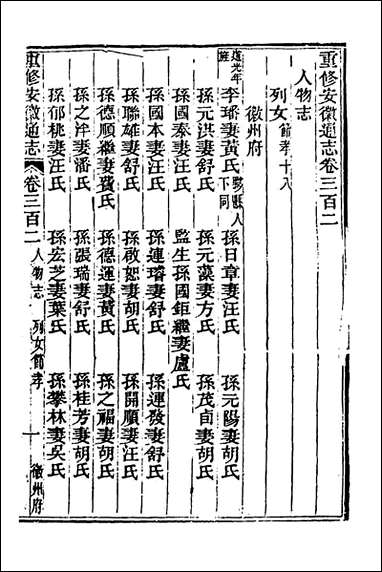 重修安徽通志卷三百二
人物志
列女節孝十八
徽州府
道光年旌 李璠妻黃氏黟縣人下同 孫日章妻汪氏 孫元陽妻胡氏
孫元洪妻舒氏 孫元藻妻方氏 孫茂貞妻胡氏
孫國泰妻汪氏 監生孫國鉅繼妻盧氏
孫國本妻汪氏 孫連璿妻舒氏 孫連發妻舒氏
孫聯雄妻舒氏 孫啟恕妻胡氏 孫開順妻汪氏
孫德順繼妻費氏 孫德運妻黃氏 孫之福妻胡氏
孫之泮妻潘氏 孫張瑞妻舒氏 孫桂芳妻胡氏
孫郁桃妻汪氏 孫宏芝妻葉氏 孫攀林妻吳氏
重修安徽通志 卷三百二 人物志 列女節孝 一 徽州府